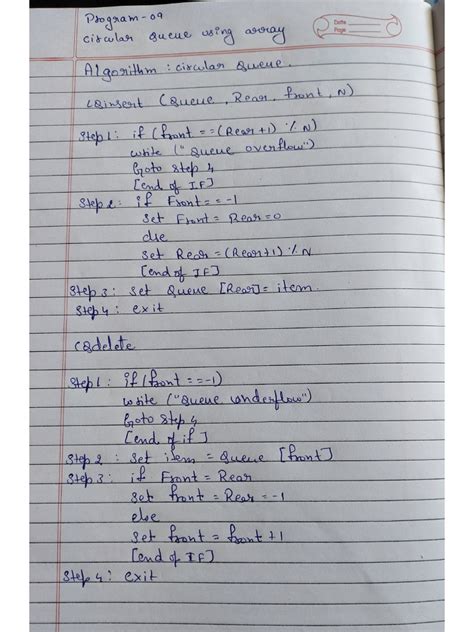 Program-09
circular Queue using array
Date
Page
Algorithm : circular Queue.
CQinsert (Queue, Rear, front, N)
Step 1 : if (front == (Rear+1) % N)
write ("Queue overflow")
Goto Step 4
[end of IF]
Step 2 : if Front == -1
set Front = Rear = 0
else
set Rear = (Rear+1) % N
[end of IF]
Step 3 : set Queue [Rear] = item
Step 4 : exit
CQdelete
Step 1 : if (front == -1)
write ("Queue underflow")
Goto Step 4
[end of if]
Step 2 : set item = Queue [front]
Step 3 : if Front = Rear
set front = Rear = -1
else
set front = front + 1
[end of IF]
Step 4 : exit